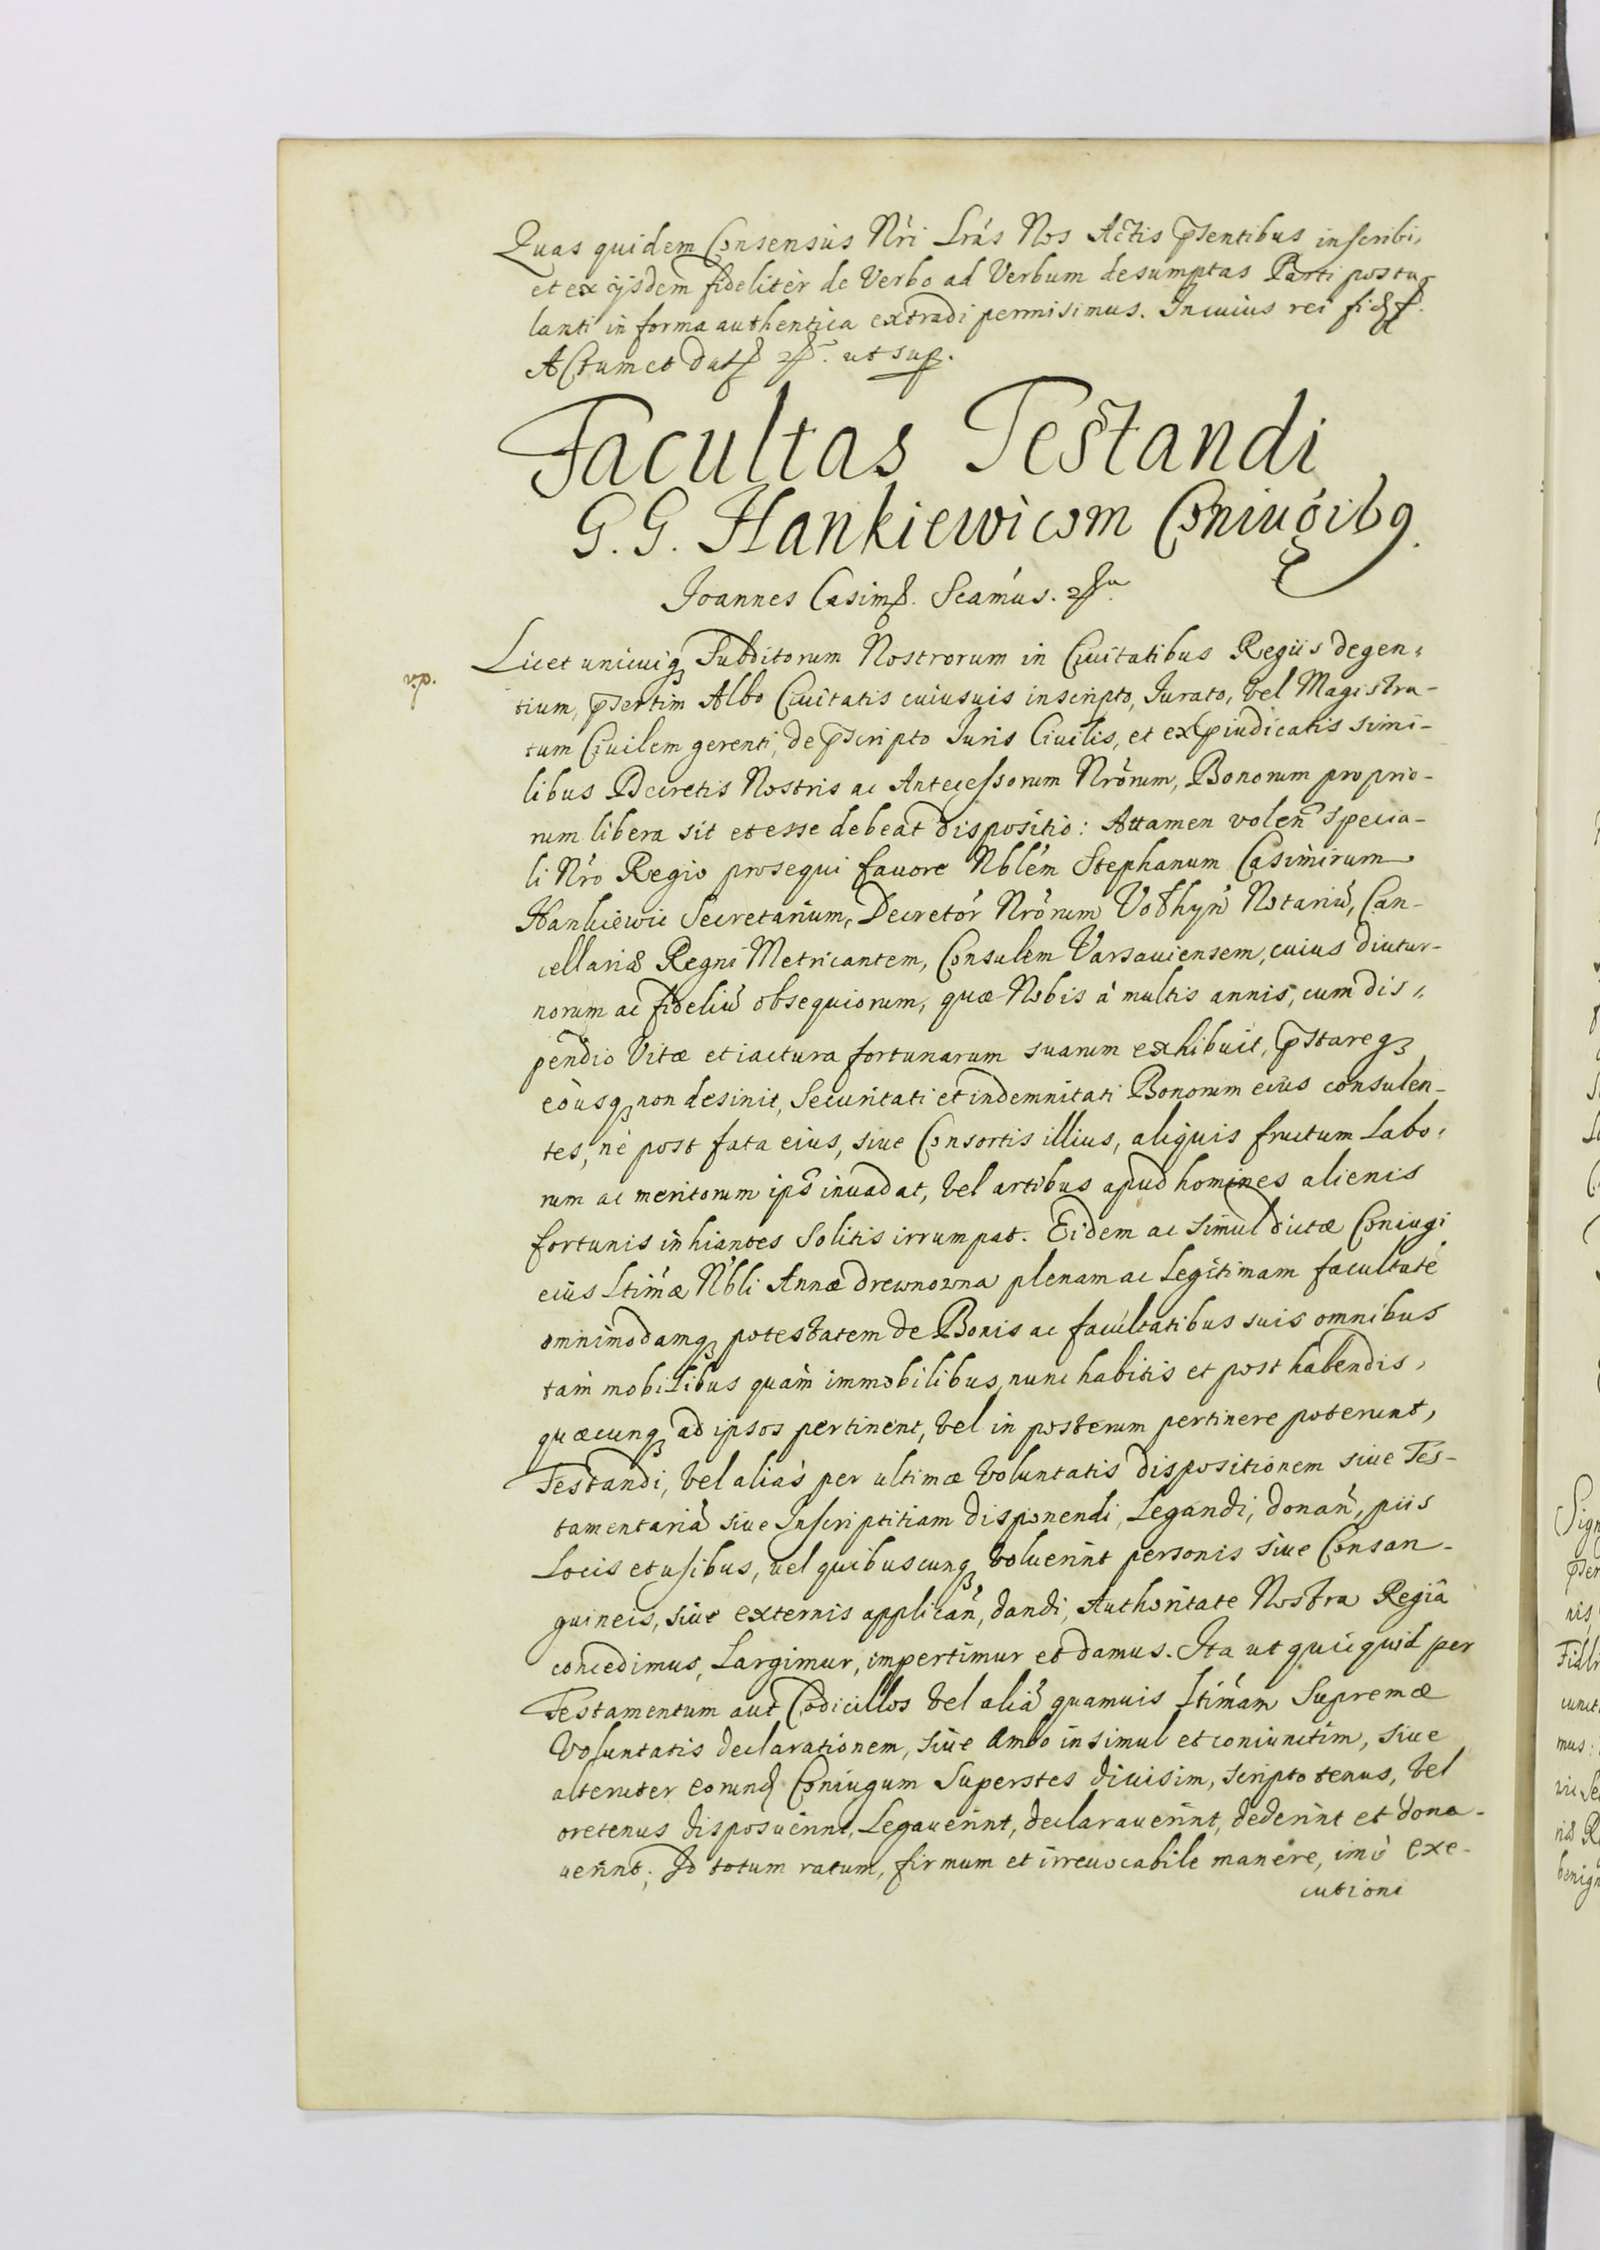 Quas quidem Consensus Nri Lras Nos Actis pñtibus inscribi,
et ex ijsdem fideliter de Verbo ad Verbum desumptas Parti postu-
lanti in forma authentica extradi permisimus. In cuius rei fid
Actum et Dat ut sup.
Facultas Testandi
G. G. Hankiewicom Coniugib9.
Joannes Casim. Seamus.
v.p.
Licet unicuiq Subditorum Nostrorum in Civitatibus Regiis degen-
tium, psertim Albo Civitatis cuiusuis inscripto, Jurato, vel Magistra-
tum Civilem gerenti, de pscripto Juris Civilis, et ex piudicatis simi-
libus Decretis Nostris ac Antecessorum Nrorum, Bonorum proprio-
rum libera sit et esse debeat dispositio: Attamen volen specia-
li Nro Regio prosequi favore Nblem Stephanum Casimirum
Hankiewic Secretarium, Decretor Nrorum Volhyn Notariu, Can-
cellariæ Regni Metricantem, Consulem Varsauiensem, cuius diutur-
norum ac fideliu obsequiorum, quæ Nobis à multis annis, cum dis-
pendio Vitæ et iactura fortunarum suarum exhibuit, pstareq
eousq non desinit, Securitati et indemnitati Bonorum eius consulen-
tes, ne post fata eius, siue Consortis illius, aliquis fructum Labo-
rum ac meritorum ips inuadat, vel artibus apud homines alienis
fortunis inhiantes Solitis irrumpat. Eidem ac simul dictæ Coniugi
eius Ltimæ Nbli Annæ drewnowna plenam ac Legitimam facultate
omnimodamq potestatem de Bonis ac facultatibus suis omnibus
tam mobilibus quàm immobilibus, nunc habitis et post habendis,
quæcunq ad ipsos pertinent, vel in posterum pertinere poterunt,
Testandi, vel aliàs per ultimæ Voluntatis dispositionem siue Tes-
tamentariã siue Inscriptitiam disponendi, Legandi, donan, piis
Locis et usibus, vel quibuscunq voluerint personis siue Consan-
guineis, siue externis applican, dandi, Authoritate Nostra Regiâ
concedimus, Largimur, impertimur et damus. Ita ut quicquid per
Testamentum aut Codicillos vel aliã quamuis Ltimam Supremæ
Voluntatis declarationem, siue ambo insimul et coniunctim, siue
alteruter eorund Coniugum Superstes diuisim, scripto tenus, vel
oretenus disposuerint, Legauerint, declarauerint, dederint et dona-
uerint; Id totum ratum, firmum et irreuocabile manere, imò exe-
cutioni